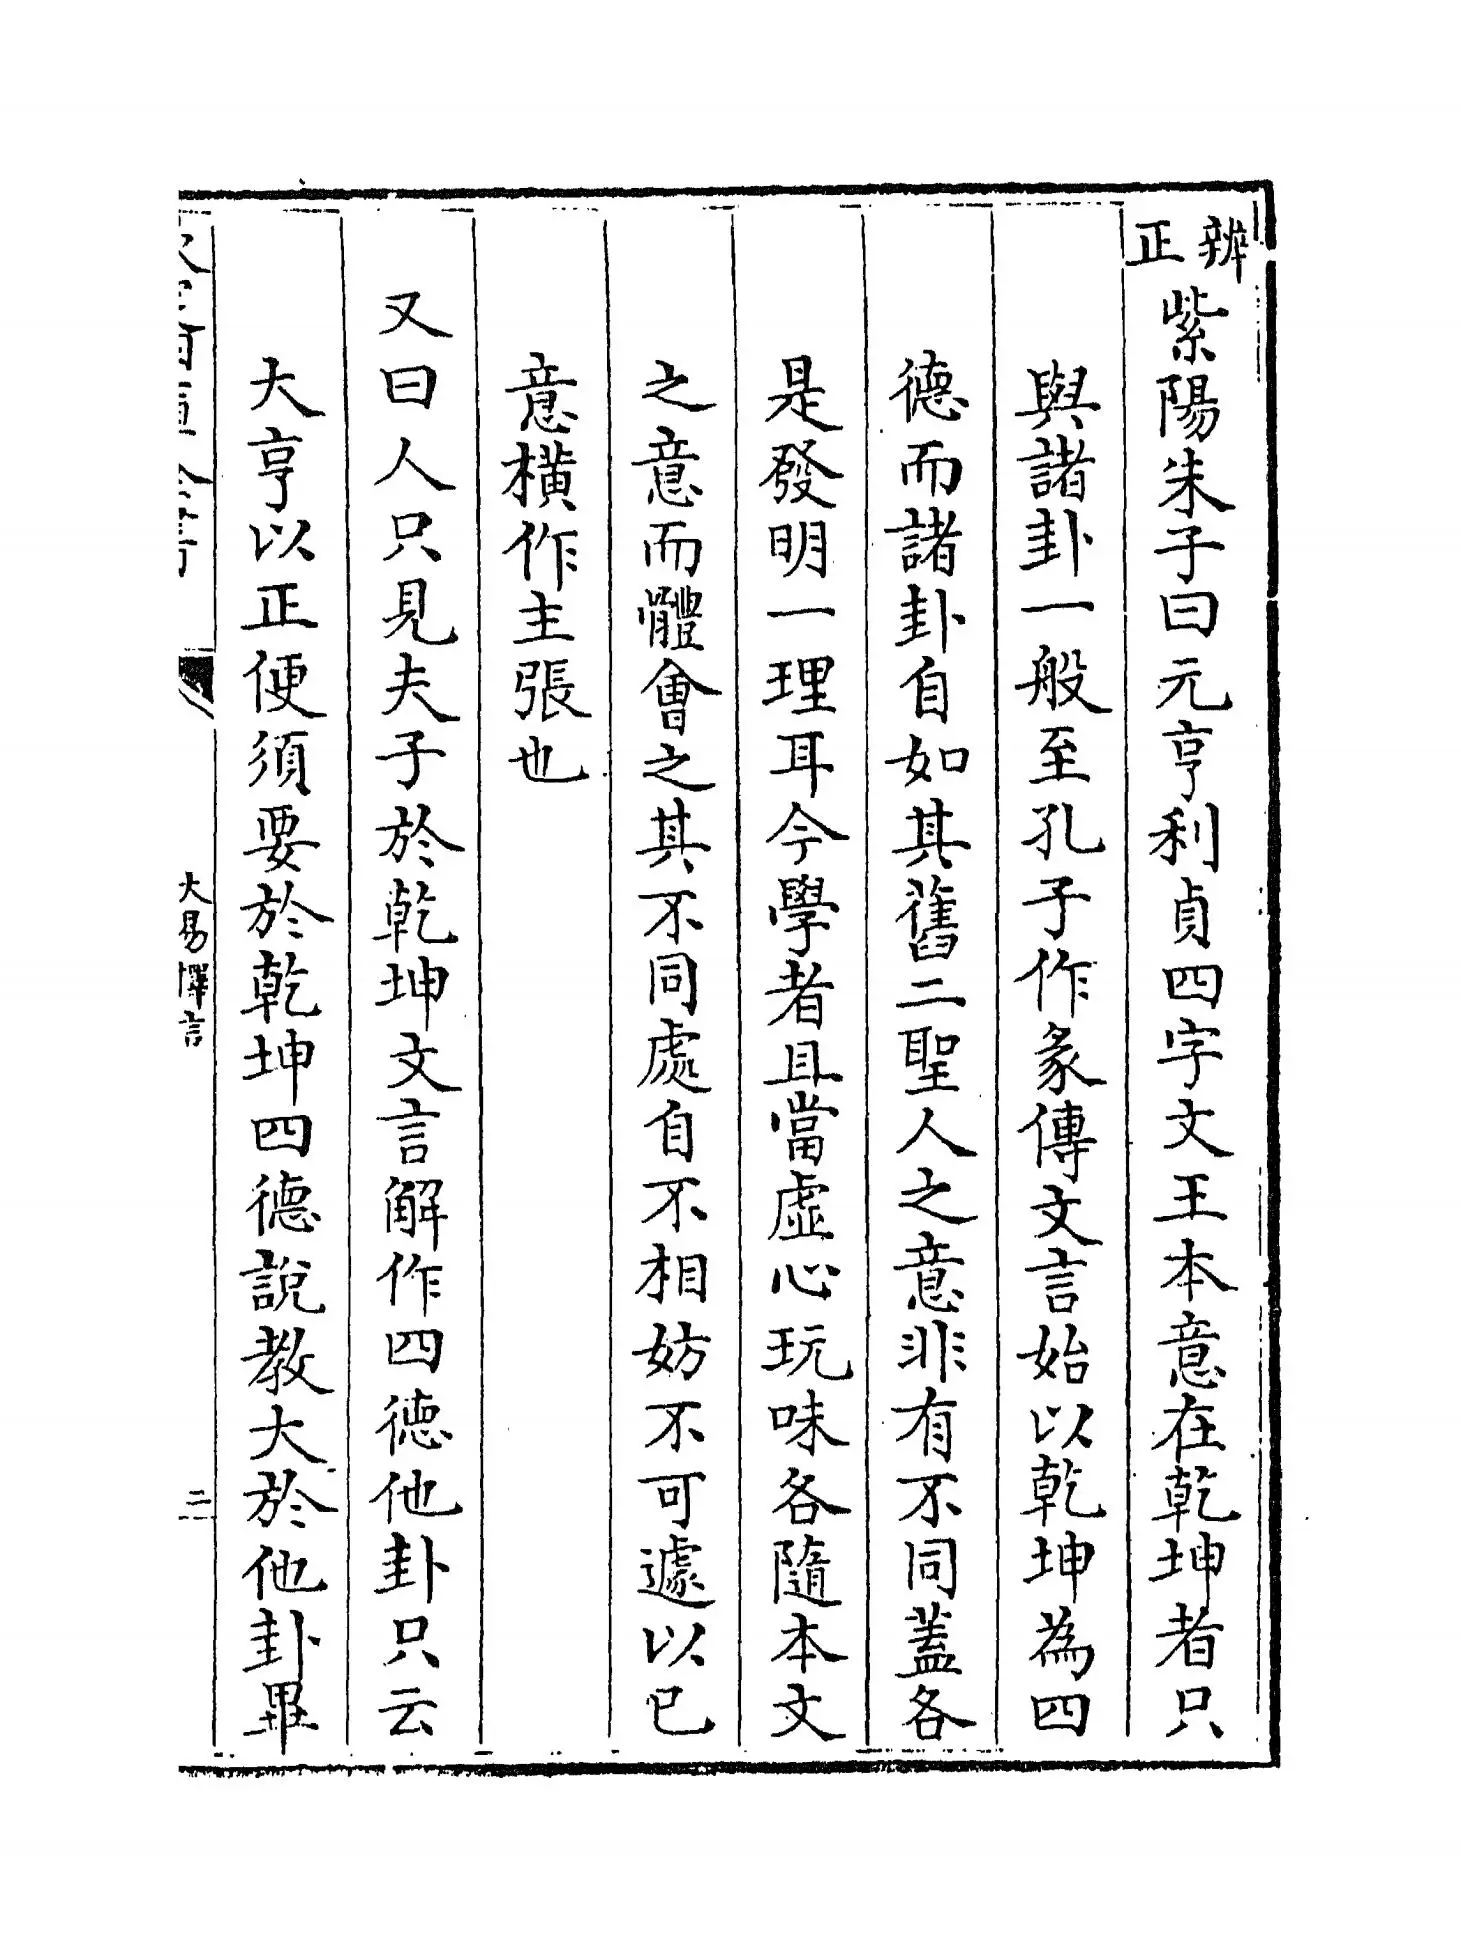 辨正紫陽朱子曰元亨利貞四字文王本意在乾坤者只
與諸卦一般至孔子作彖傳文言始以乾坤為四
德而諸卦自如其舊二聖人之意非有不同蓋各
是發明一理耳今學者且當虛心玩味各隨本文
之意而體會之其不同處自不相妨不可遽以已
意橫作主張也
又曰人只見夫子於乾坤文言解作四德他卦只云
大亨以正便須要於乾坤四德說教大於他卦畢
大易擇言
二